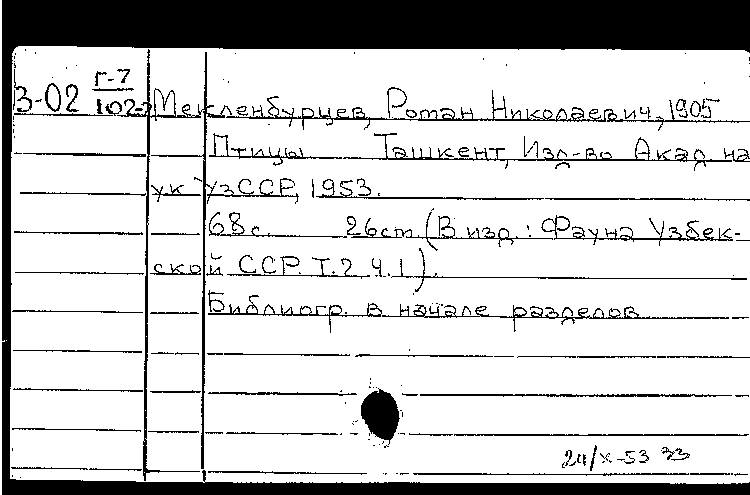 З-02 Г-7
102-2 Мекленбурцев, Роман Николаевич, 1905
Птицы Ташкент, Изд-во Акад на
ук УзССР, 1953.
68 с. 26 cm (В изд.: Фауна Узбек-
ской ССР. Т.2 Ч.1).
Библиогр. в начале разделов
24/X-53 33